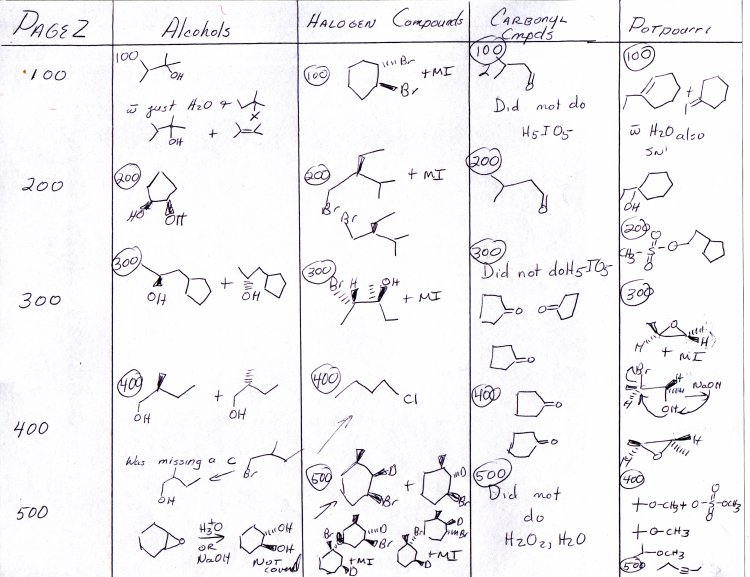 PAGE 2
Alcohols
HALOGEN Compounds
CARBONYL Cmpds
POTPOURRI
100
100
OH
w̄ just H2O &
X
OH
+
100
Br
Br
+ MI
100
2
O
Did not do
H5IO5
100
+
w̄ H2O also
SN1
OH
200
200
HO
OH
200
+ MI
Br
Br
200
O
200
CH3-S-O
O
O
300
300
OH
+
OH
300
Br H
OH
+ MI
300
Did not do H5IO5
O
O
O
300
O
H
H
+ MI
Br
H
H
OH
NaOH
H
O
H
400
400
OH
+
OH
400
Cl
400
O
O
400
+O-CH3 + O-S-OCH3
O
O
+O-CH3
OCH3
Was missing a C
Br
OH
500
O
H3O+
OR
NaOH
OH
OH
NOT
covered
500
D
Br
+
D
Br
D
Br
D
Br
+MI
D
+MI
D
500
Did not
do
H2O2, H2O
500